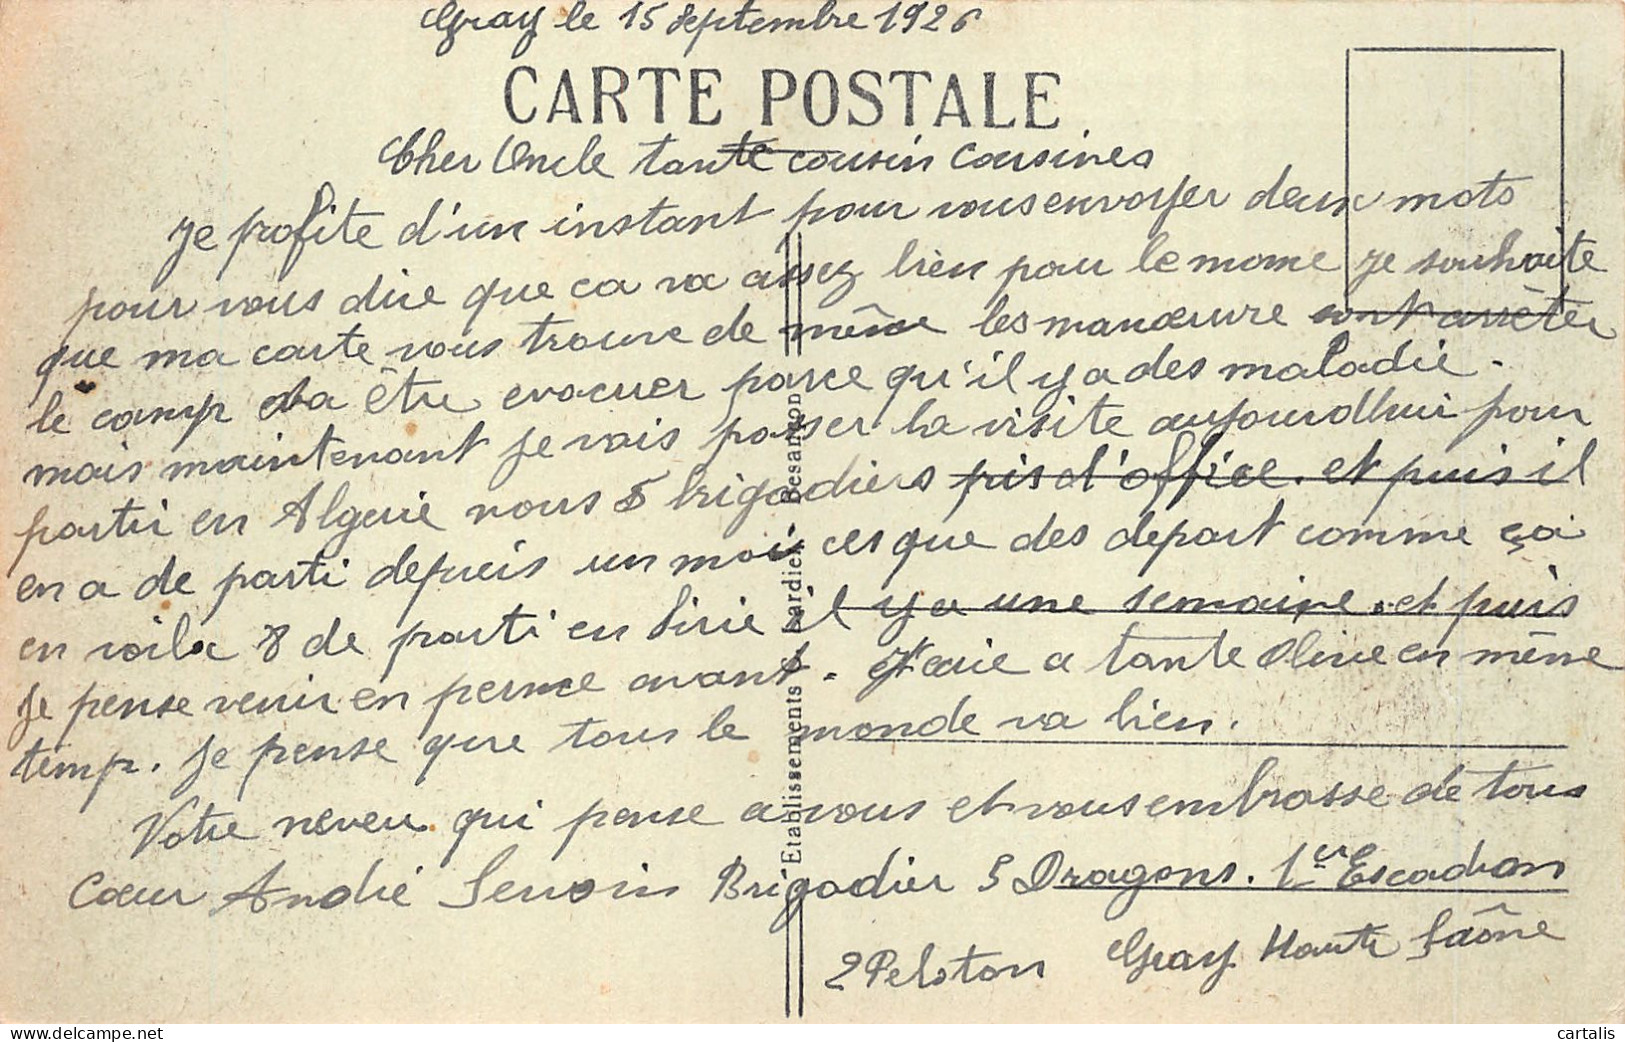 Gray le 15 Septembre 1926
CARTE POSTALE
Cher Oncle tante cousin Cousines
Je profite d'un instant pour vous envoyer deux mots
pour vous dire que ca va assez bien pour le mome je souhaite
que ma carte vous trouve de même les manœuvre sont arrêter
le camp a être evacuer parce qu'il y a des maladie.
mais maintenant je vais passer la visite aujourdhui pour
partir en Algerie nous 5 brigadiers pris d'office. et puis il
en a de parti depuis un moi ces que des depart comme ça
en voila 8 de parti en Sirie il y a une semaine. et puis
je pense venir en perme avant. J'ecrie a tante Olive en même
temp. Je pense que tous le monde va bien.
Votre neveu qui pense a vous et vous embrasse de tous
Cœur André Servoin Brigadier 5 Dragons. 1er Escadron
2 Peloton Gray Haute Saône
Etablissements Bardiet Besançon
cartalis